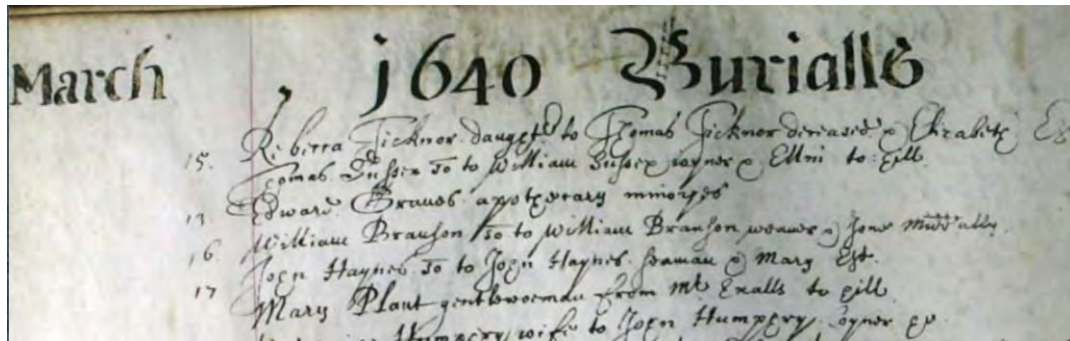 March 1640 Burialls
Rebecca Ticknor daughtr to Thomas Ticknor deceased & Elizabeth
15. Thomas Sussex so to William Sussex joyner & Ellin to: hill
13 Edward Graues apothecary minories
16 William Branson so to William Branson weauer & Jone Midd ally
John Haynes so to John Haynes seaman & Mary Est.
17 Mary Plant gentlwoeman from Mr to hill
Humphry wife to John Humphry joyner